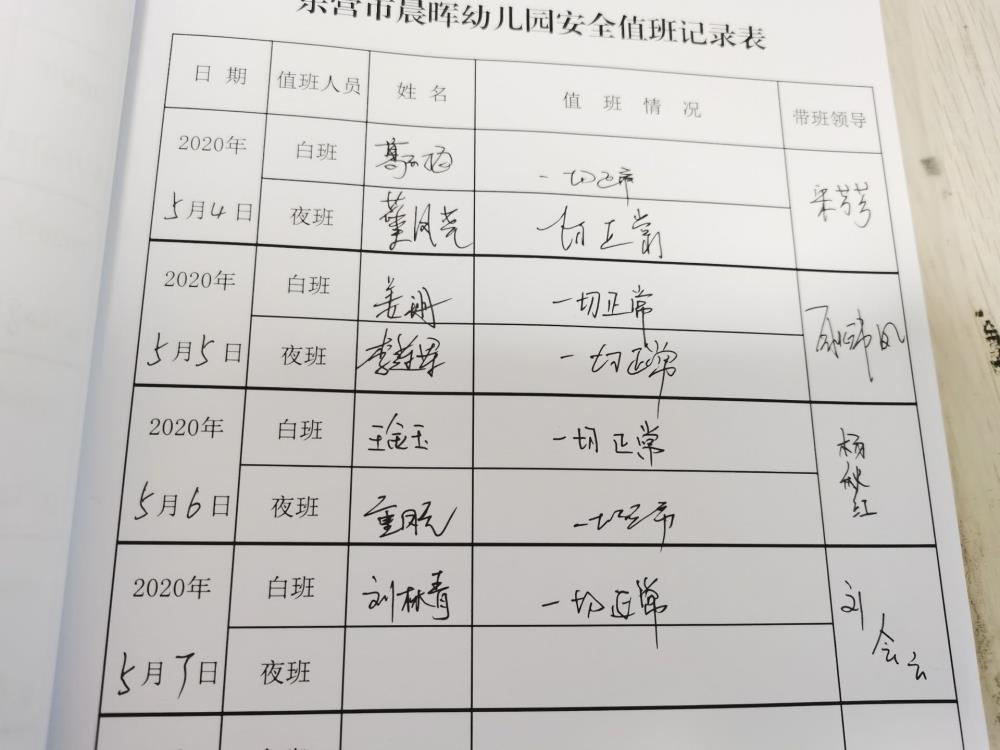 东营市晨晖幼儿园安全值班记录表
日期 值班人员 姓名 值班情况 带班领导
2020年
5月4日
白班 一切正常
夜班 董风尧 一切正常
2020年
5月5日
白班 姜丽 一切正常
夜班 一切正常
2020年
5月6日
白班 王金玉 一切正常
夜班 一切正常
杨秋红
2020年
5月7日
白班 刘林青 一切正常
夜班
刘会云